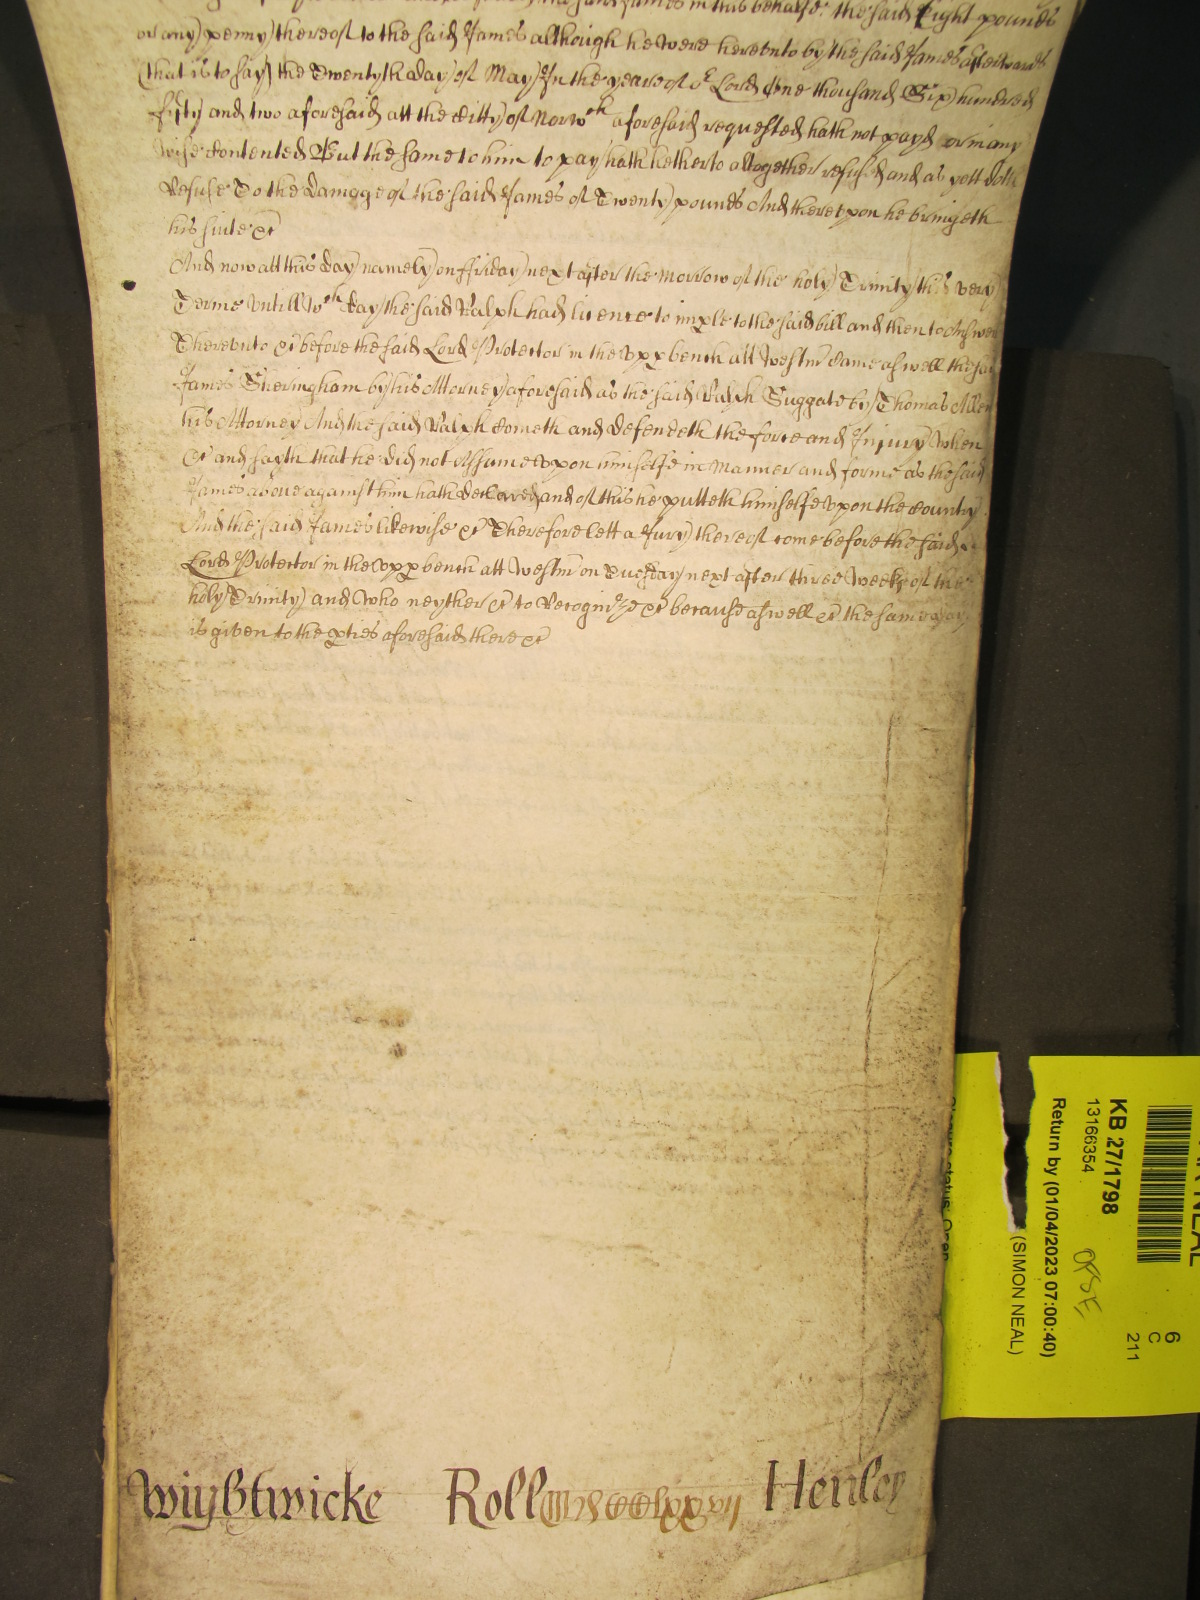 the said James in this behalfe the said Eight pounds
or any penny thereof to the said James although he were herevnto by the said James afterwards
(that is to say) the Twentyth day of May In the yeare of or Lord One thousand Six hundred
fifty and two aforesaid att the Citty of Norwch aforesaid requested hath not payd or in any
wise Contented But the same to him to pay hath hetherto altogether refused and as yett doth
Refuse To the damage of the said James of Twenty pounds And therevpon he bringeth
his suite &c
And now att this day namely on ffriday next after the Morrow of the holy Trinity this very
Terme Vntill wch day the said Ralph had licence to imple to the said bill and then to Answer
Therevnto &c before the said Lord Protector in the vpp bench att Westmr Came aswell the said
James Sheringham by his Attorney aforesaid as the said Ralph Suggate by Thomas Allen
his Attorney And the said Ralph Cometh and defendeth the force and Injury When
&c and sayth that he did not Assume vpon himselfe in Manner and forme as the said
James above against him hath declared and of this he putteth himselfe vpon the Country
And the said James likewise &c Therefore lett a Jury thereof come before the said
Lord Protector in the vpp bench att Westmr on Tuesday next after three Weekes of the
holy Trinity and Who neyther &c to Recognize &c because aswell &c the same day
is given to the pties aforesaid there &c
Wightwicke Roll Henley
KB 27/1798
13166354
Return by (01/04/2023 07:00:40)
(SIMON NEAL)
6
C
211